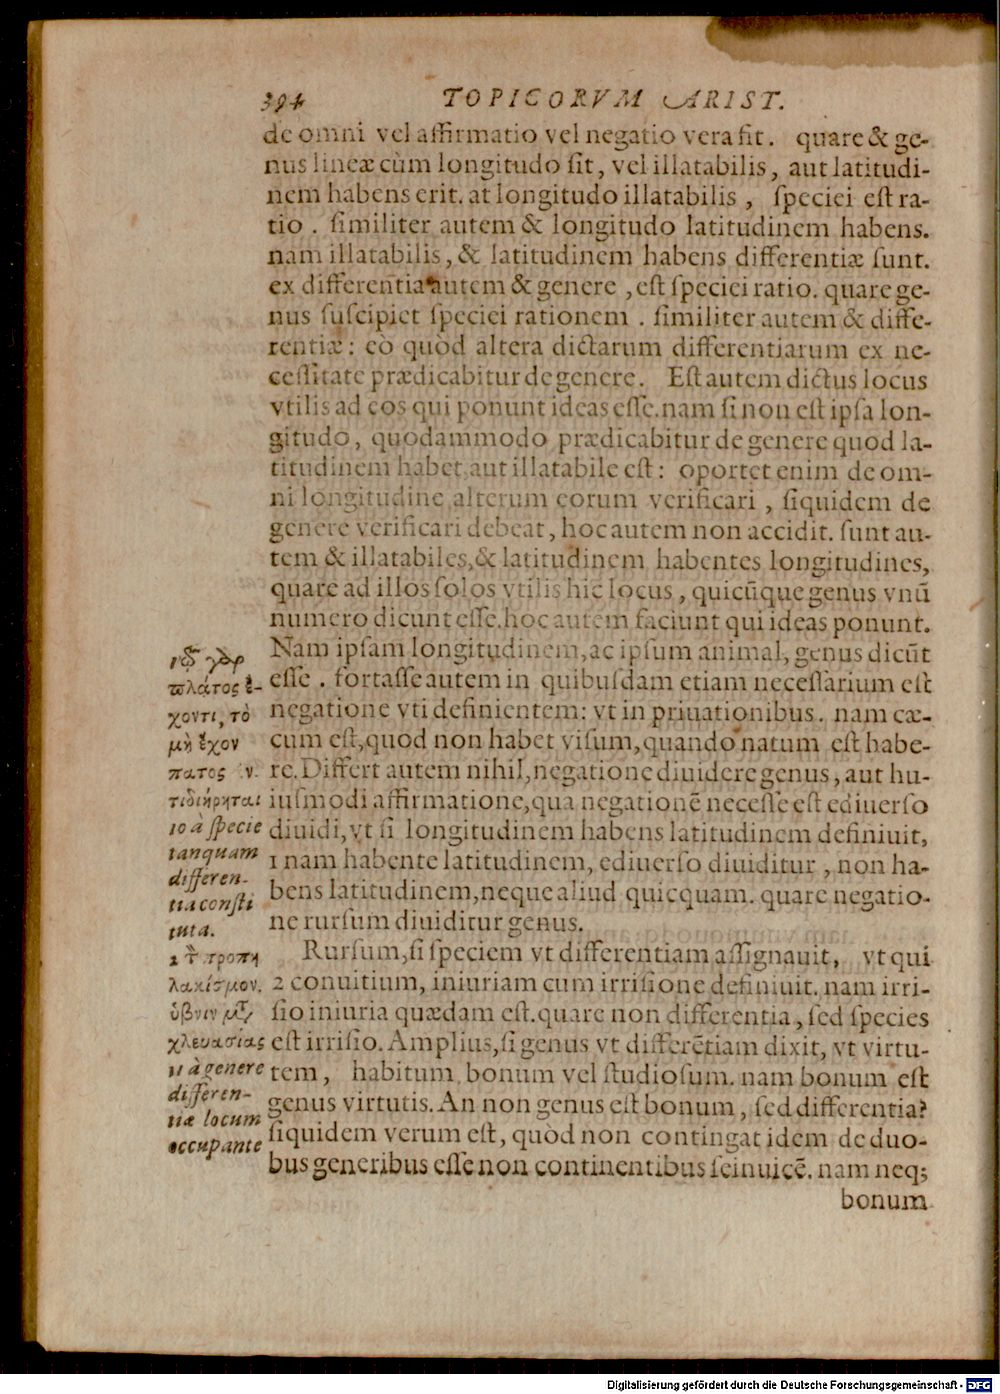 394 TOPICORVM ARIST.
de omni vel affirmatio vel negatio vera fit. quare & ge-
nus lineæ cùm longitudo sit, vel illatabilis, aut latitudi-
nem habens erit. at longitudo illatabilis, speciei est ra-
tio. similiter autem & longitudo latitudinem habens.
nam illatabilis, & latitudinem habens differentiæ sunt.
ex differentia autem & genere, est speciei ratio. quare ge-
nus suscipiet speciei rationem. similiter autem & diffe-
rentiæ: eò quòd altera dictarum differentiarum ex ne-
cessitate prædicabitur de genere. Est autem dictus locus
vtilis ad eos qui ponunt ideas esse. nam si non est ipsa lon-
gitudo, quodammodo prædicabitur de genere quod la-
titudinem habet aut illatabile est: oportet enim de om-
ni longitudine alterum eorum verificari, siquidem de
genere verificari debeat, hoc autem non accidit. sunt au-
tem & illatabiles, & latitudinem habentes longitudines,
quare ad illos solos vtilis hic locus, quicũque genus vnũ
numero dicunt esse. hoc autem faciunt qui ideas ponunt.
Nam ipsam longitudinem, ac ipsum animal, genus dicũt
esse. fortasse autem in quibusdam etiam necessarium est
negatione vti definientem: vt in priuationibus. nam cæ-
cum est, quod non habet visum, quando natum est habe-
re. Differt autem nihil, negatione diuidere genus, aut hu-
iusmodi affirmatione, qua negationē necesse est ediuerso
diuidi, vt si longitudinem habens latitudinem definiuit,
1 nam habente latitudinem, ediuerso diuiditur, non ha-
bens latitudinem, neque aliud quicquam. quare negatio-
ne rursum diuiditur genus.
Rursum, si speciem vt differentiam assignauit, vt qui
2 conuitium, iniuriam cum irrisione definiuit. nam irri-
sio iniuria quædam est. quare non differentia, sed species
est irrisio. Amplius, si genus vt differētiam dixit, vt virtu-
tem, habitum bonum vel studiosum. nam bonum est
genus virtutis. An non genus est bonum, sed differentia?
siquidem verum est, quòd non contingat idem de duo-
bus generibus esse non continentibus seinuicē. nam neq;
bonum
γὰρ
πλάτος ἔ-
χοντι, τὸ
μὴ ἔχον
10 à specie
tanquam
differen-
tia consti
tuta.
2 προπη
λακισμον.
ὕβριν
χλευασίας
11 à genere
differen-
tiæ locum
occupante
Digitalisierung gefördert durch die Deutsche Forschungsgemeinschaft - DFG